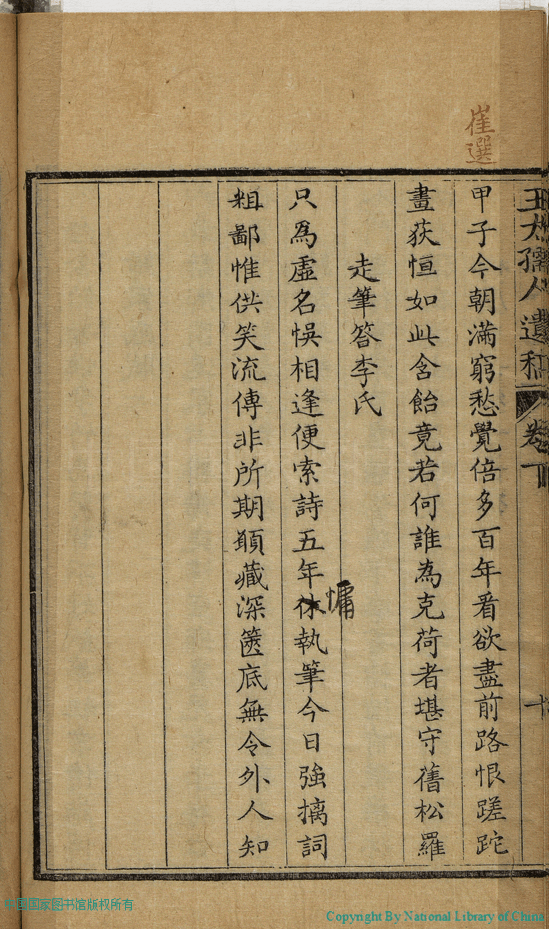 王太孺人遺稿 卷下 十
崔選
甲子今朝滿窮愁覺倍多百年看欲盡前路恨蹉跎
畫荻恒如此含飴竟若何誰為克荷者堪守舊松羅
走筆答李氏
只為虛名悞相逢便索詩五年休執筆今日強摛詞
慵
粗鄙惟供笑流傳非所期願藏深篋底無令外人知
中国国家图书馆版权所有
Copyright By National Library of China